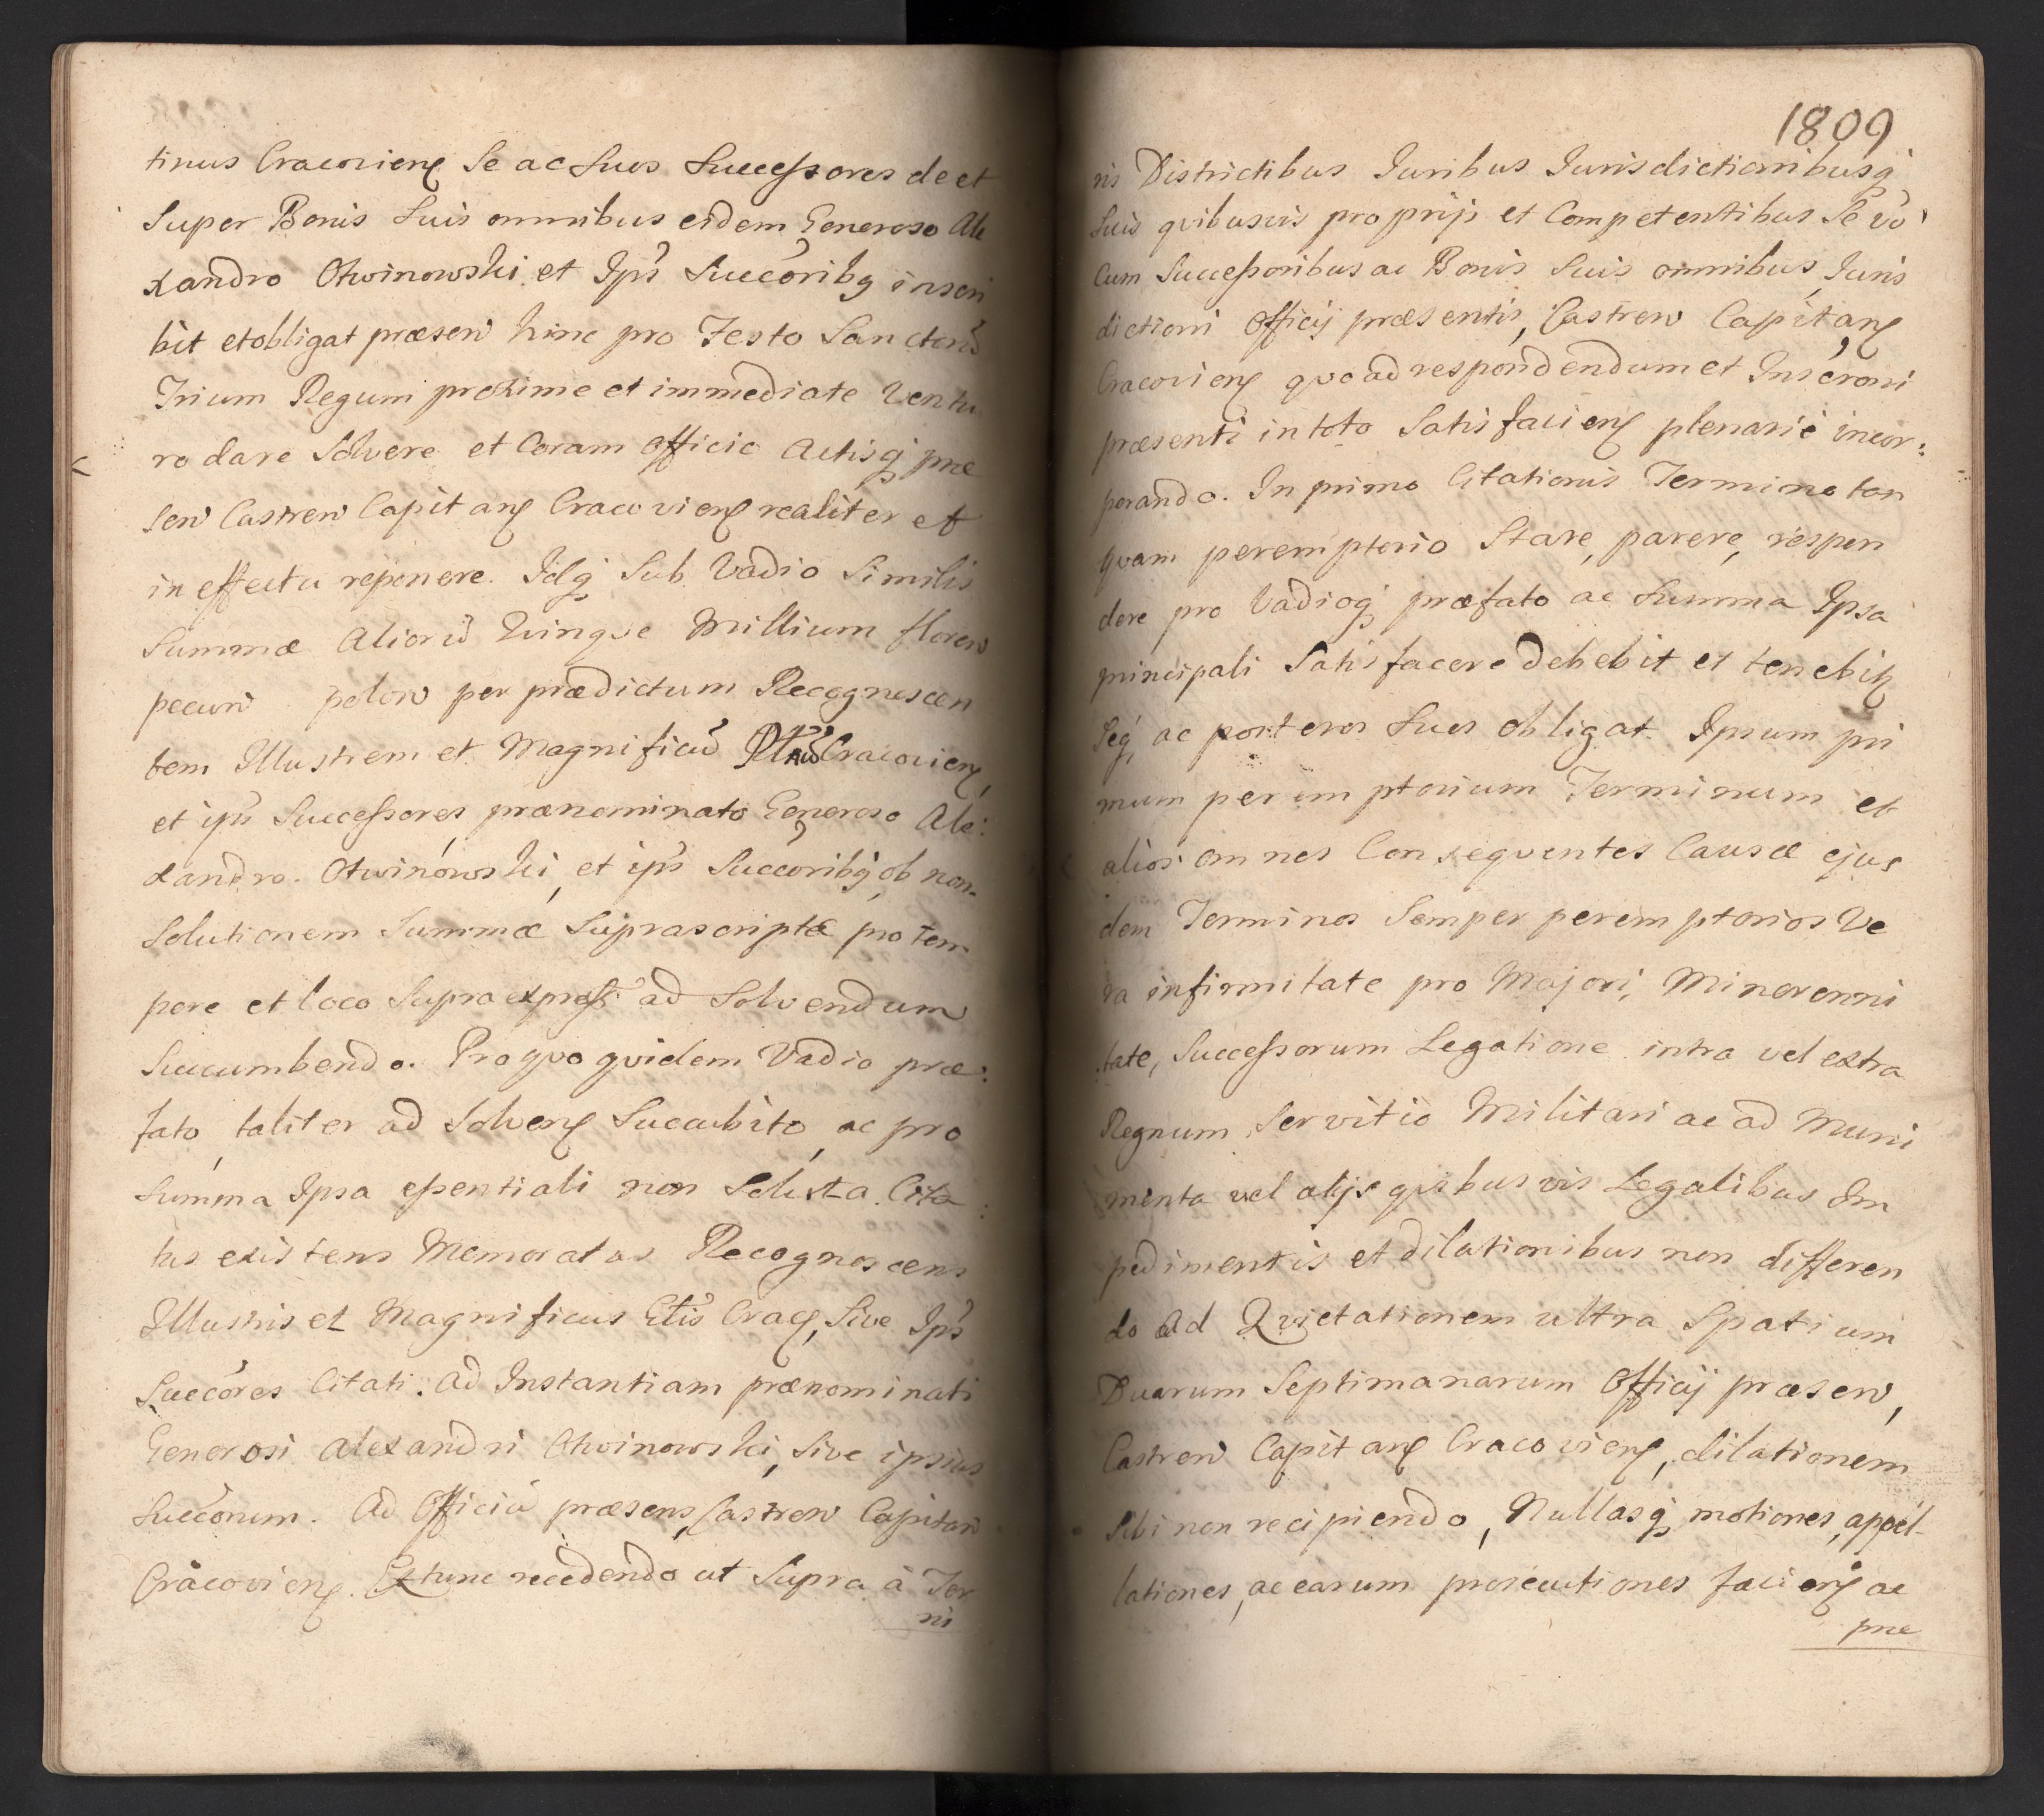 tinus Cracovien Se ac Suos Successores de et
Super Bonis Suis omnibus eidem Generoso Ale
xandro Otwinowski et Ips Succoribq inscri
bit et obligat præsen hinc pro Festo Sanctorũ
Trium Regum proxime et immediate Ventu
ro dare Solvere et Coram Officio Actisq præ
sen Castren Capitan Cracovien realiter et
in effectu reponere. Idq Sub Vadio Similis
Summæ Aliorũ Quinque Millium floren
pecun polon per prædictum Recognoscen
tem Illustrem et Magnificũ Cracovien,
et ips Successores prænominato Generoso Ale:
xandro. Otwinowski, et ips Succoribq, ob non-
Solutionem Summæ Suprascriptæ pro tem
pore et loco Supra express ad Solvendum
Succumbendo. Pro qvo qvidem Vadio præ:
fato, taliter ad Solven Succubito, ac pro
Summa Ipsa essentiali non Soluta. Cita:
tus existens Memoratus Recognoscens
Illustris et Magnificus Ctis Crac, Sive Ips
Succores Citati. Ad Instantiam prænominati
Generosi Alexandri Otwinowski, Sive ipsius
Succorum. Ad Officiũ præsens, Castren Capitan
Cracovien. Extunc recedendo ut Supra à Ter
ri
1809
ris Districtibus Juribus Jurisdictionibusq
Suis qvibusvis proprijs et Competentibus Se vo
Cum Successoribus ac Bonis Suis omnibus, Juris
dictioni Officij præsentis, Castren Capitan
Cracovien qvo ad respondendum et Inscroni
præsenti in toto Satisfacien plenarie incor:
porando. In primo Citationis Termino tan
qvam peremptorio Stare, parere, respon
dere pro Vadioq præfato ac Summa Ipsa
principali Satisfacere debebit et tenebit
Seq ac posteros Suos obligat. Ipsum pri
mum peremptorium Terminum et
alios omnes Conseqventes Causæ ejus
dem Terminos Semper peremptorios Ve
ra infirmitate pro Majori, Minorenni
tate, Successorum Legatione intra vel extra
Regnum Servitio Militari ac ad Muni
menta vel alijs qvibusvis Legalibus Im
pedimentis et dilationibus non differen
do Ad Qvietationem ultra Spatium
Duarum Septimanarum Officij præsen,
Castren Capitan Cracovien, dilationem
Sibi non recipiendo, Nullasq motiones, appel-
lationes, ac earum prosecutiones facien ac
præ